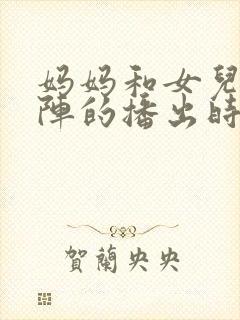 妈妈和女兒
陣的播出時
賀蘭央央